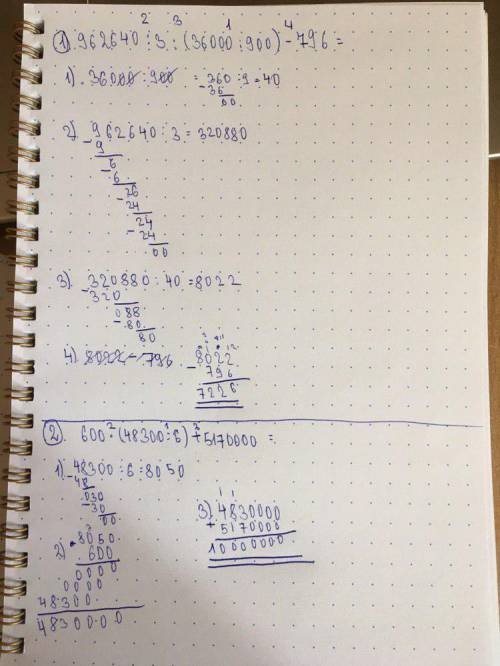 2 3 1 4
1) 962640 : 3 : (36000 : 900) - 796 =
1). 36000 : 900 = 360 : 9 = 40
- 36
00
2) 962640 : 3 = 320880
- 9
6
- 6
26
- 24
24
- 24
00
3) 320880 : 40 = 8022
- 320
088
- 80
80
4) 8022 - 796
8022
- 796
7226
2. 600 · (48300 : 6) + 5170000 =
1) 48300 : 6 = 8050
- 48
030
- 30
00
2) 8050
600
0000
0000
48300
4830000
3) 4830000
+ 5170000
10000000